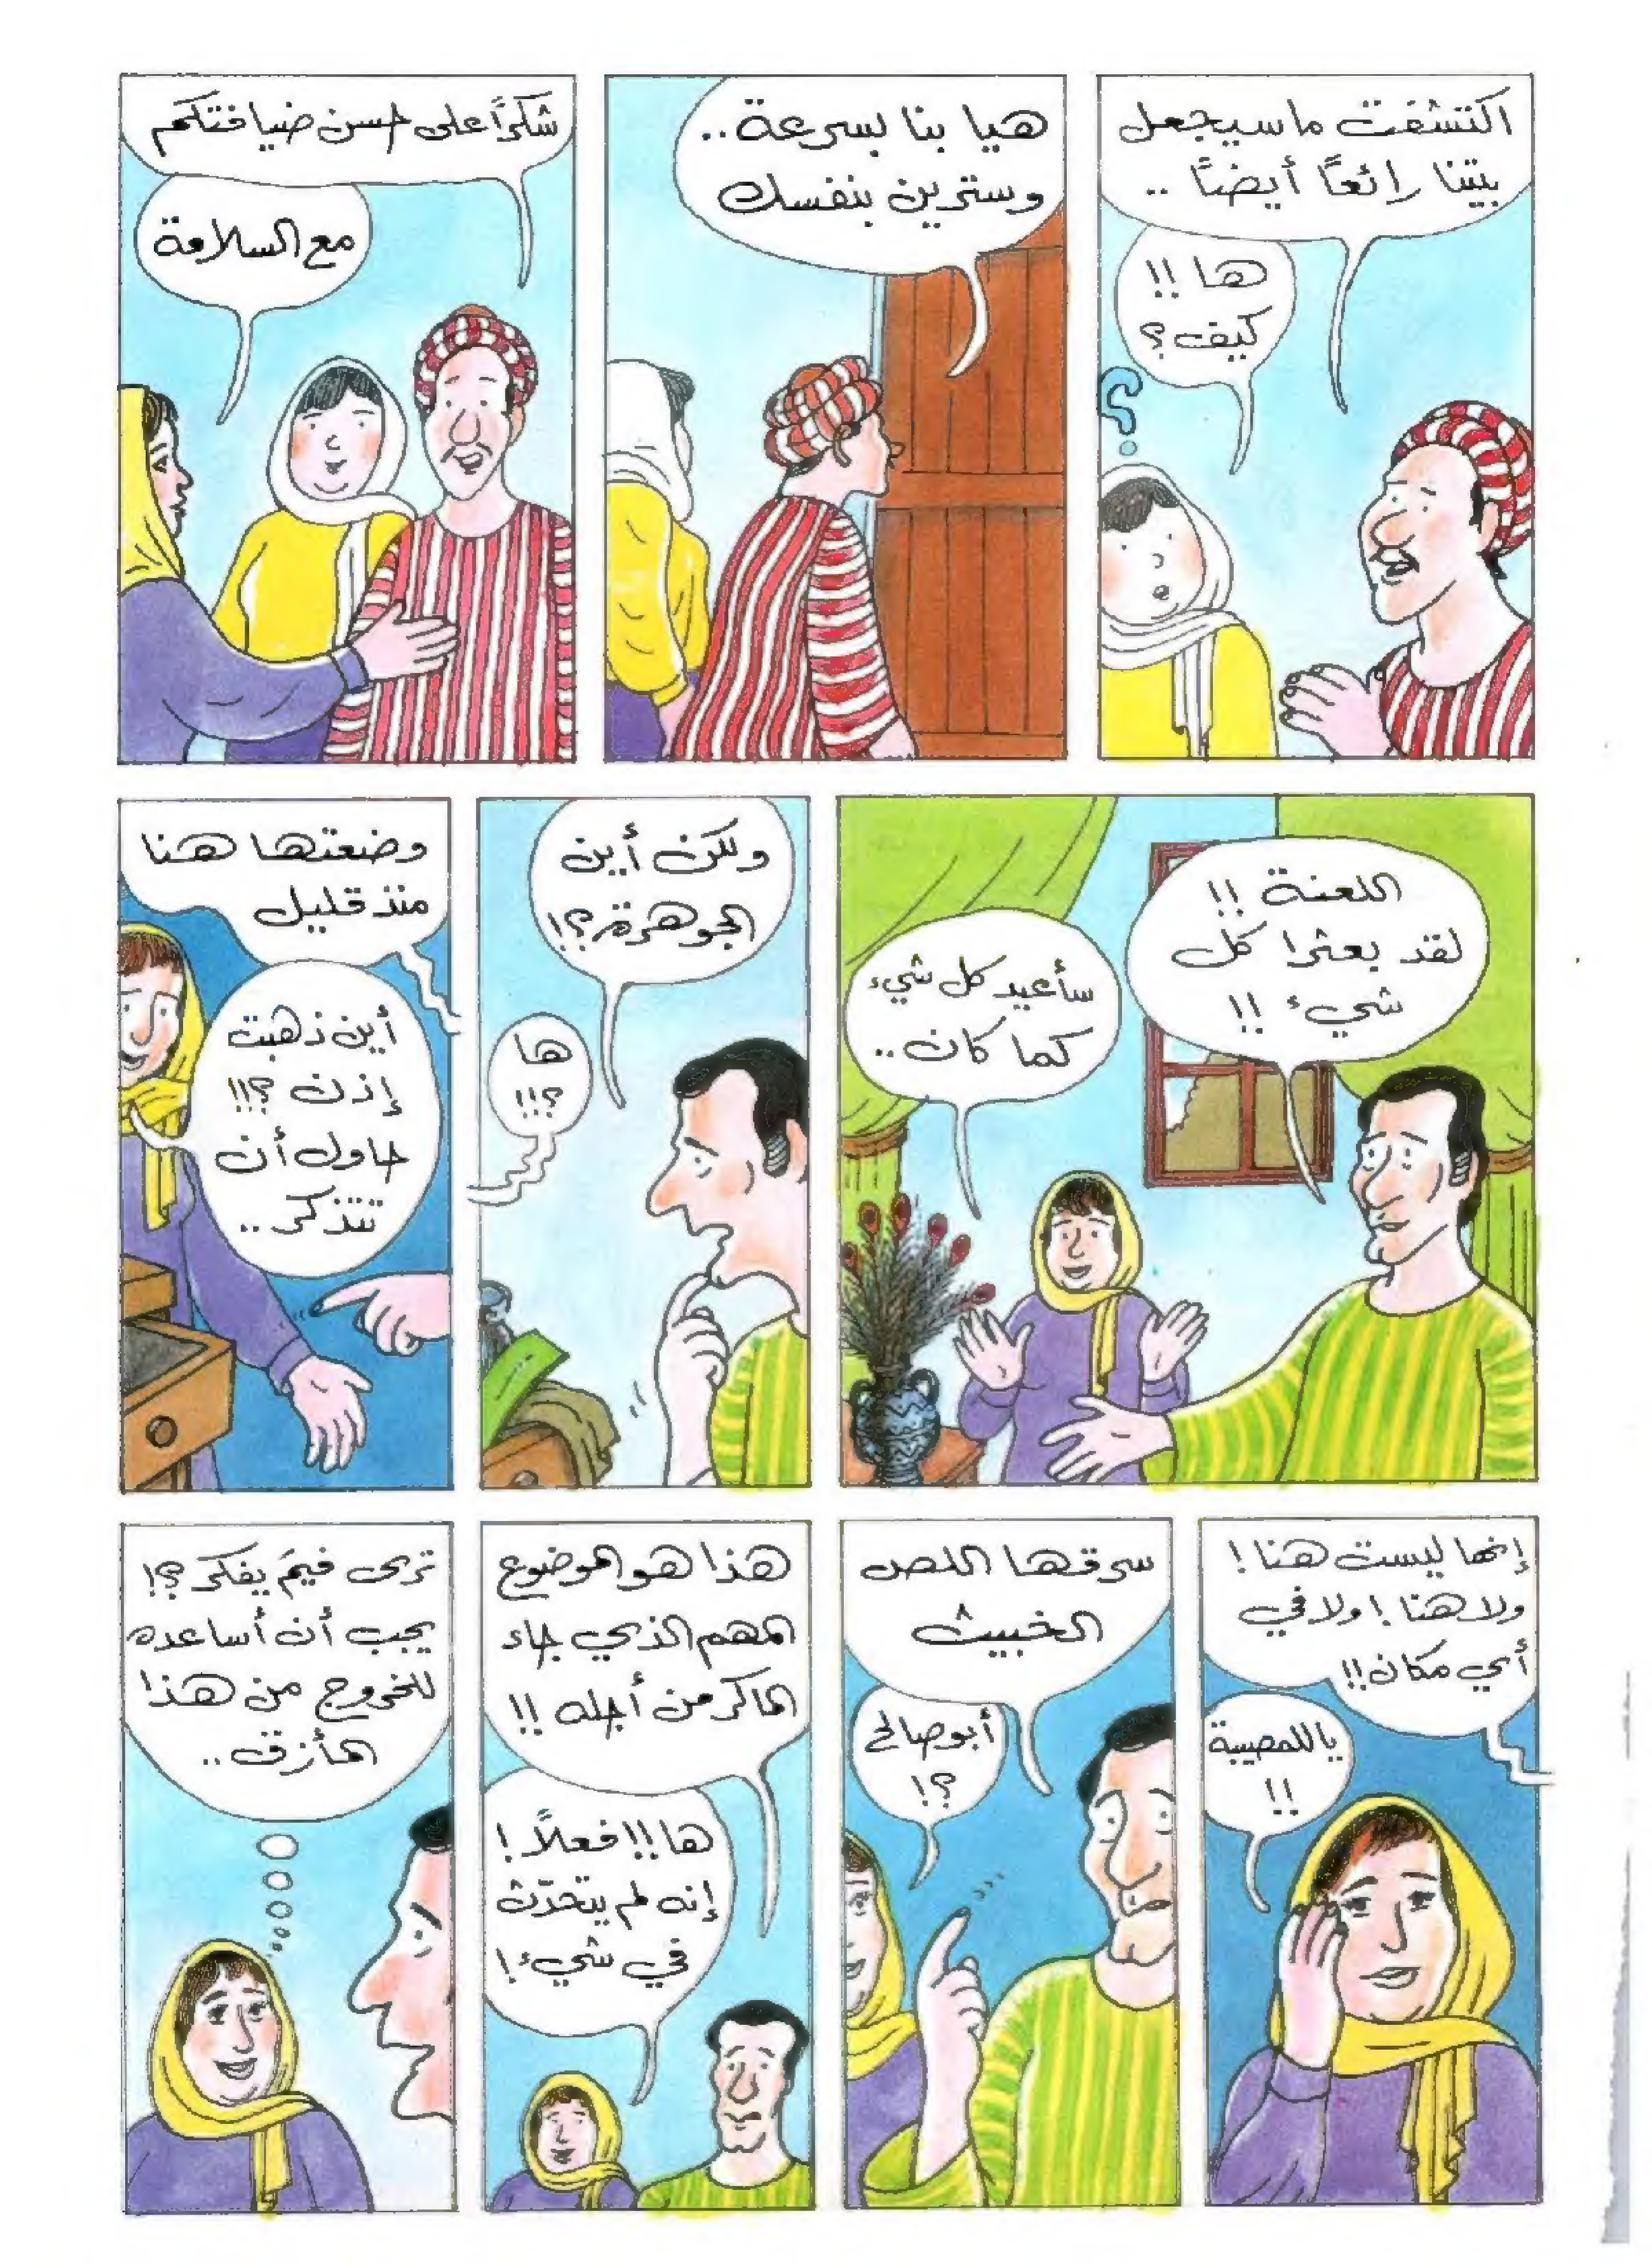 اكتشفت ما سيجعل
بيتنا رائعًا أيضًا ..
ها !!
كيف ؟
هيا بنا بسرعة ..
وسترين بنفسك
شكرًا على حسن ضيافتكم
مع السلامة
اللعنة !!
لقد بعثرا كل
شيء !!
سأعيد كل شيء
كما كان ..
ولكن أين
الجوهرة ؟!
ها
؟!!
وضعتها هنا
منذ قليل
أين ذهبت
إذن ؟!!
حاول أن
تتذكر ..
إنها ليست هنا !
ولا هنا ! ولا في
أي مكان !!
ياللمصيبة
!!
سرقها اللص
الخبيث
أبو صالح
؟!
هذا هو الموضوع
المهم الذي جاء
الماكر من أجله !!
ها !! فعلًا !
إنه لم يتحدّث
في شيء !
ترى فيمَ يفكر ؟!
يجب أن أساعده
للخروج من هذا
المأزق ..